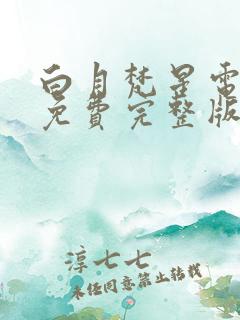 白月梵星電
免費完整版
淳七七
未经同意禁止转载